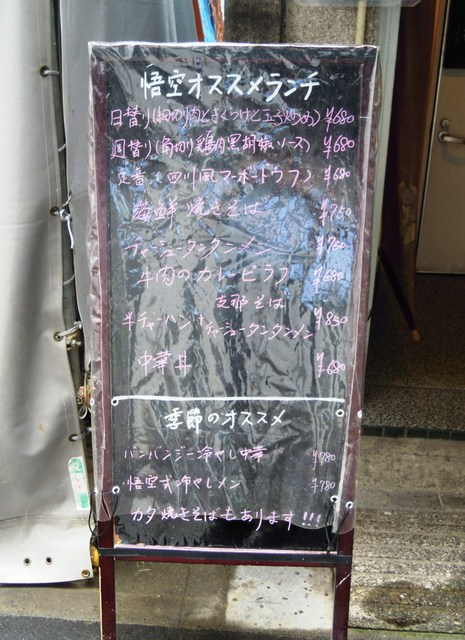 悟空オススメランチ
日替り(細切り肉ときくらげと玉子炒め) ¥680
週替り(角切り鶏肉黒胡椒ソース) ¥680
定番 四川風マーボートウフ ¥680
海鮮焼きそば ¥750
チャーシュータンタンメン ¥700
牛肉のカレーピラフ ¥680
支那そば
半チャーハン+チャーシュータンタンメン ¥850
中華丼 ¥680
季節のオススメ
バンバンジー冷やし中華
悟空式冷やしメン ¥780
カタ焼きそばもあります!!!